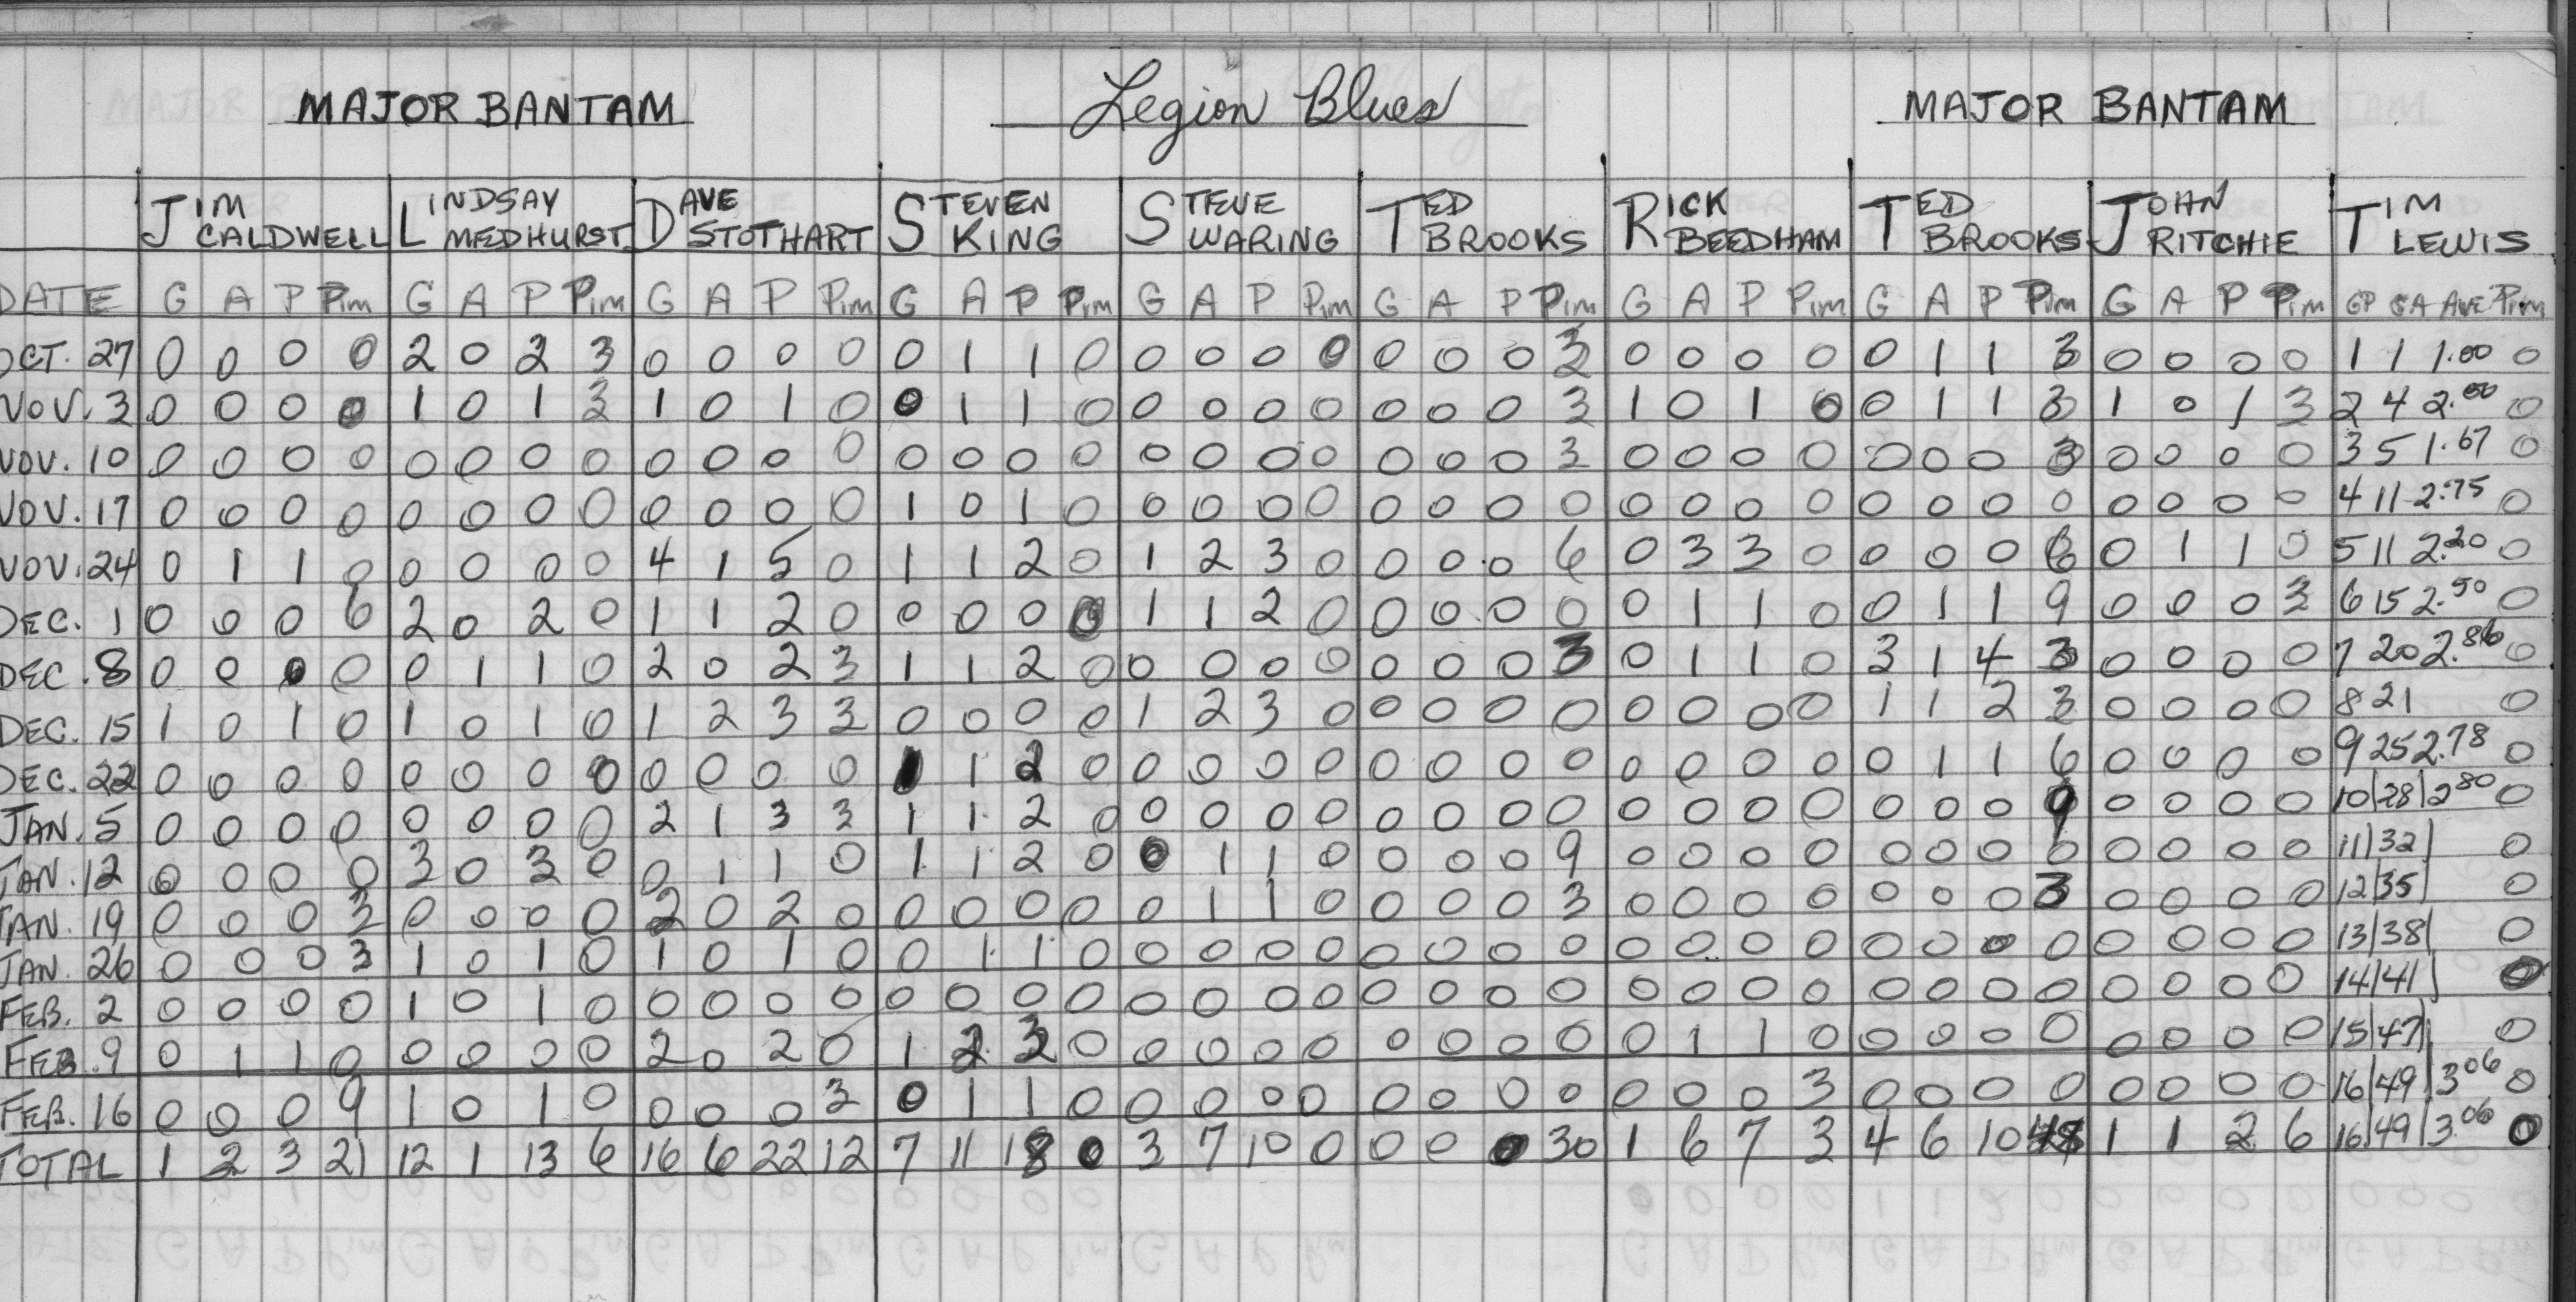 MAJOR BANTAM Legion Blues MAJOR BANTAM
JIM CALDWELL LINDSAY MEDHURST DAVE STOTHART STEVEN KING STEVE WARING TED BROOKS RICK BEEDHAM TED BROOKS JOHN RITCHIE TIM LEWIS
DATE G A P Pim G A P Pim G A P Pim G A P Pim G A P Pim G A P Pim G A P Pim G A P Pim G A P Pim GP GA AVE Pim
OCT. 27 0 0 0 0 2 0 2 3 0 0 0 0 0 1 1 0 0 0 0 0 0 0 0 3 0 0 0 0 0 1 1 3 0 0 0 0 1 1 1.00 0
NOV. 3 0 0 0 0 1 0 1 3 1 0 1 0 0 1 1 0 0 0 0 0 0 0 0 3 1 0 1 0 0 1 1 3 1 0 1 3 2 4 2.00 0
NOV. 10 0 0 0 0 0 0 0 0 0 0 0 0 0 0 0 0 0 0 0 0 0 0 0 3 0 0 0 0 0 0 0 3 0 0 0 0 3 5 1.67 0
NOV. 17 0 0 0 0 0 0 0 0 0 0 0 0 1 0 1 0 0 0 0 0 0 0 0 0 0 0 0 0 0 0 0 0 0 0 0 0 4 11 2.75 0
NOV. 24 0 1 1 0 0 0 0 0 4 1 5 0 1 1 2 0 1 2 3 0 0 0 0 6 0 3 3 0 0 0 0 6 0 1 1 0 5 11 2.20 0
DEC. 1 0 0 0 6 2 0 2 0 1 1 2 0 0 0 0 0 1 1 2 0 0 0 0 0 0 1 1 0 0 1 1 9 0 0 0 3 6 15 2.50 0
DEC. 8 0 0 0 0 0 1 1 0 2 0 2 3 1 1 2 0 0 0 0 0 0 0 0 3 0 1 1 0 3 1 4 3 0 0 0 0 7 20 2.86 0
DEC. 15 1 0 1 0 1 0 1 0 1 2 3 3 0 0 0 0 1 2 3 0 0 0 0 0 0 0 0 0 1 1 2 3 0 0 0 0 8 21 0
DEC. 22 0 0 0 0 0 0 0 0 0 0 0 0 1 1 2 0 0 0 0 0 0 0 0 0 0 0 0 0 0 1 1 6 0 0 0 0 9 25 2.78 0
JAN. 5 0 0 0 0 0 0 0 0 2 1 3 3 1 1 2 0 0 0 0 0 0 0 0 0 0 0 0 0 0 0 0 9 0 0 0 0 10|28|2 80 0
JAN. 12 0 0 0 0 3 0 3 0 0 1 1 0 1 1 2 0 0 1 1 0 0 0 0 9 0 0 0 0 0 0 0 0 0 0 0 0 11|32| 0
JAN. 19 0 0 0 3 0 0 0 0 2 0 2 0 0 0 0 0 0 1 1 0 0 0 0 3 0 0 0 0 0 0 0 3 0 0 0 0 12|35| 0
JAN. 26 0 0 0 3 1 0 1 0 1 0 1 0 0 1 1 0 0 0 0 0 0 0 0 0 0 0 0 0 0 0 0 0 0 0 0 0 13|38| 0
FEB. 2 0 0 0 0 1 0 1 0 0 0 0 0 0 0 0 0 0 0 0 0 0 0 0 0 0 0 0 0 0 0 0 0 0 0 0 0 14|41| 0
FEB. 9 0 1 1 0 0 0 0 0 2 0 2 0 1 2 3 0 0 0 0 0 0 0 0 0 0 1 1 0 0 0 0 0 0 0 0 0 15|47| 0
FEB. 16 0 0 0 9 1 0 1 0 0 0 0 3 0 1 1 0 0 0 0 0 0 0 0 0 0 0 0 3 0 0 0 0 0 0 0 0 16|49|3 06 0
TOTAL 1 2 3 21 12 1 13 6 16 6 22 12 7 11 18 0 3 7 10 0 0 0 0 30 1 6 7 3 4 6 10 48 1 1 2 6 16|49|3.06 0